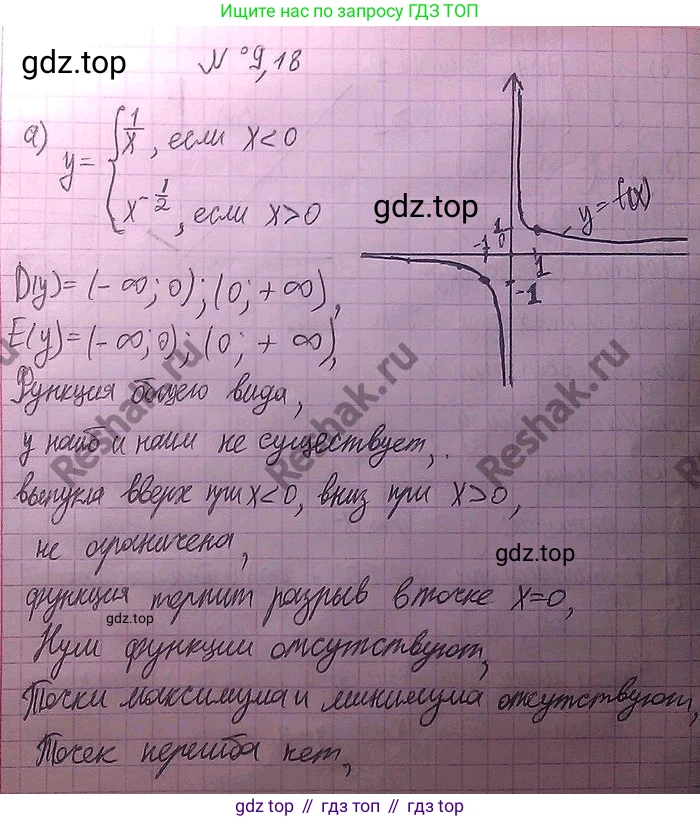 Ищите нас по запросу ГДЗ ТОП
gdz.top
№ 9,18
а) y = { 1/x, если x < 0
x^{-1/2}, если x > 0
gdz.top
y = f(x)
-1 1 0 1
-1
D(y) = (-∞; 0); (0; +∞),
E(y) = (-∞; 0); (0; +∞),
Функция общего вида,
y наиб и наим не существует,
выпукла вверх при x < 0, вниз при x > 0,
не ограничена,
gdz.top
функция терпит разрыв в точке x = 0,
gdz.top
Нули функции отсутствуют,
Точки максимума и минимума отсутствуют,
Точек перегиба нет,
Reshak.ru
Reshak.ru
Reshak.ru
gdz top // гдз топ // gdz.top